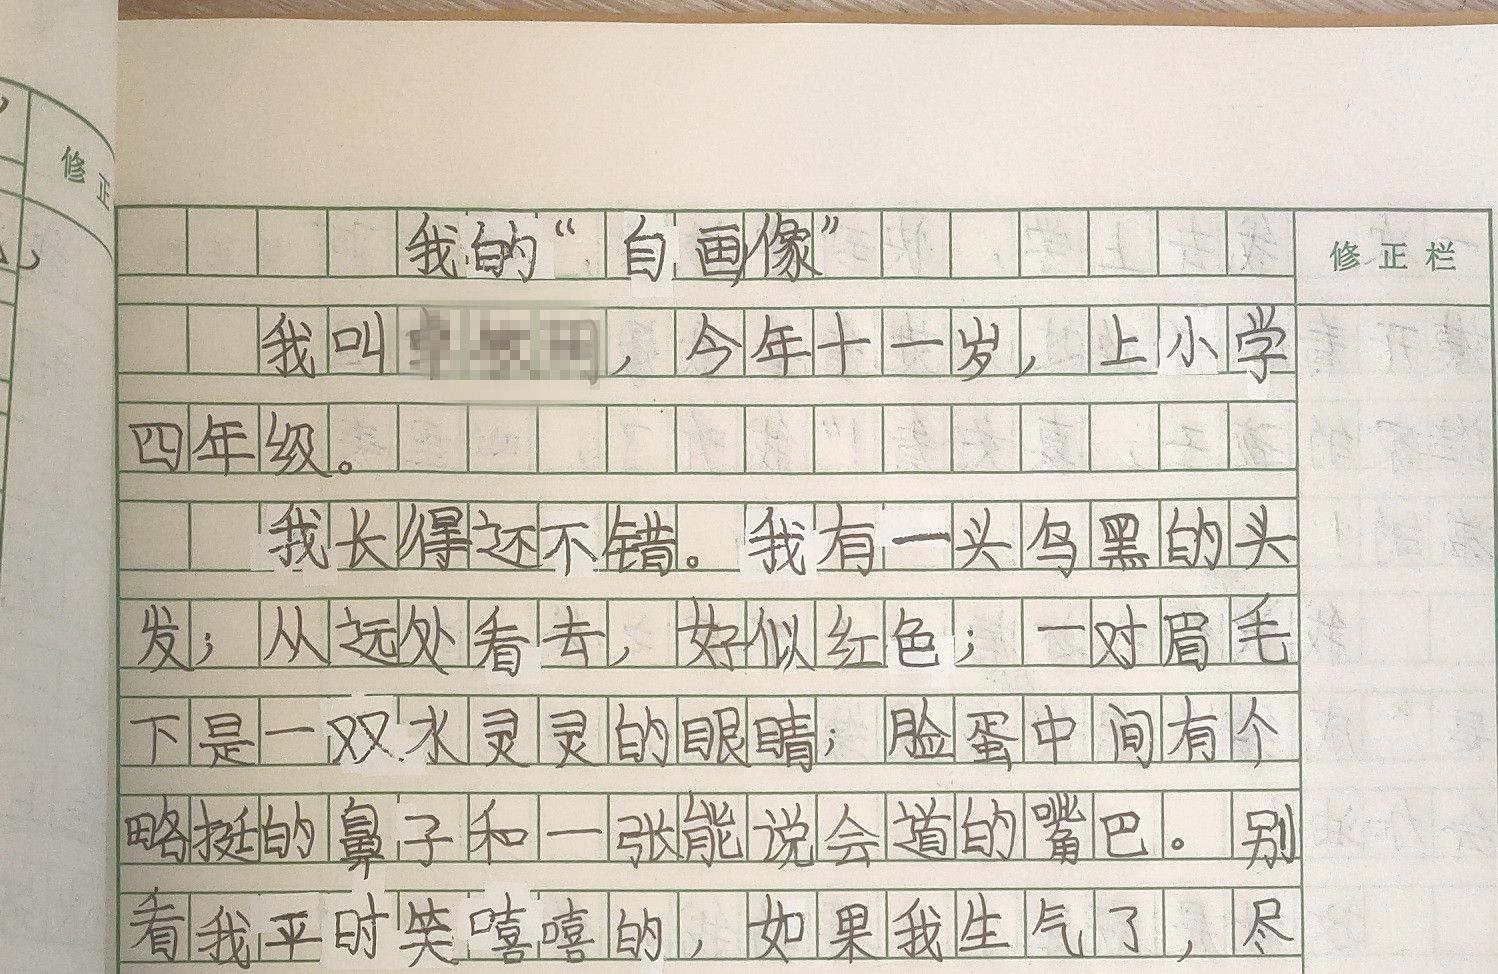 修正
我的“自画像”
修正栏
我叫，今年十一岁，上小学
四年级。
我长得还不错。我有一头乌黑的头
发；从远处看去，好似红色；一对眉毛
下是一双水灵灵的眼睛；脸蛋中间有个
略挺的鼻子和一张能说会道的嘴巴。别
看我平时笑嘻嘻的，如果我生气了，尽